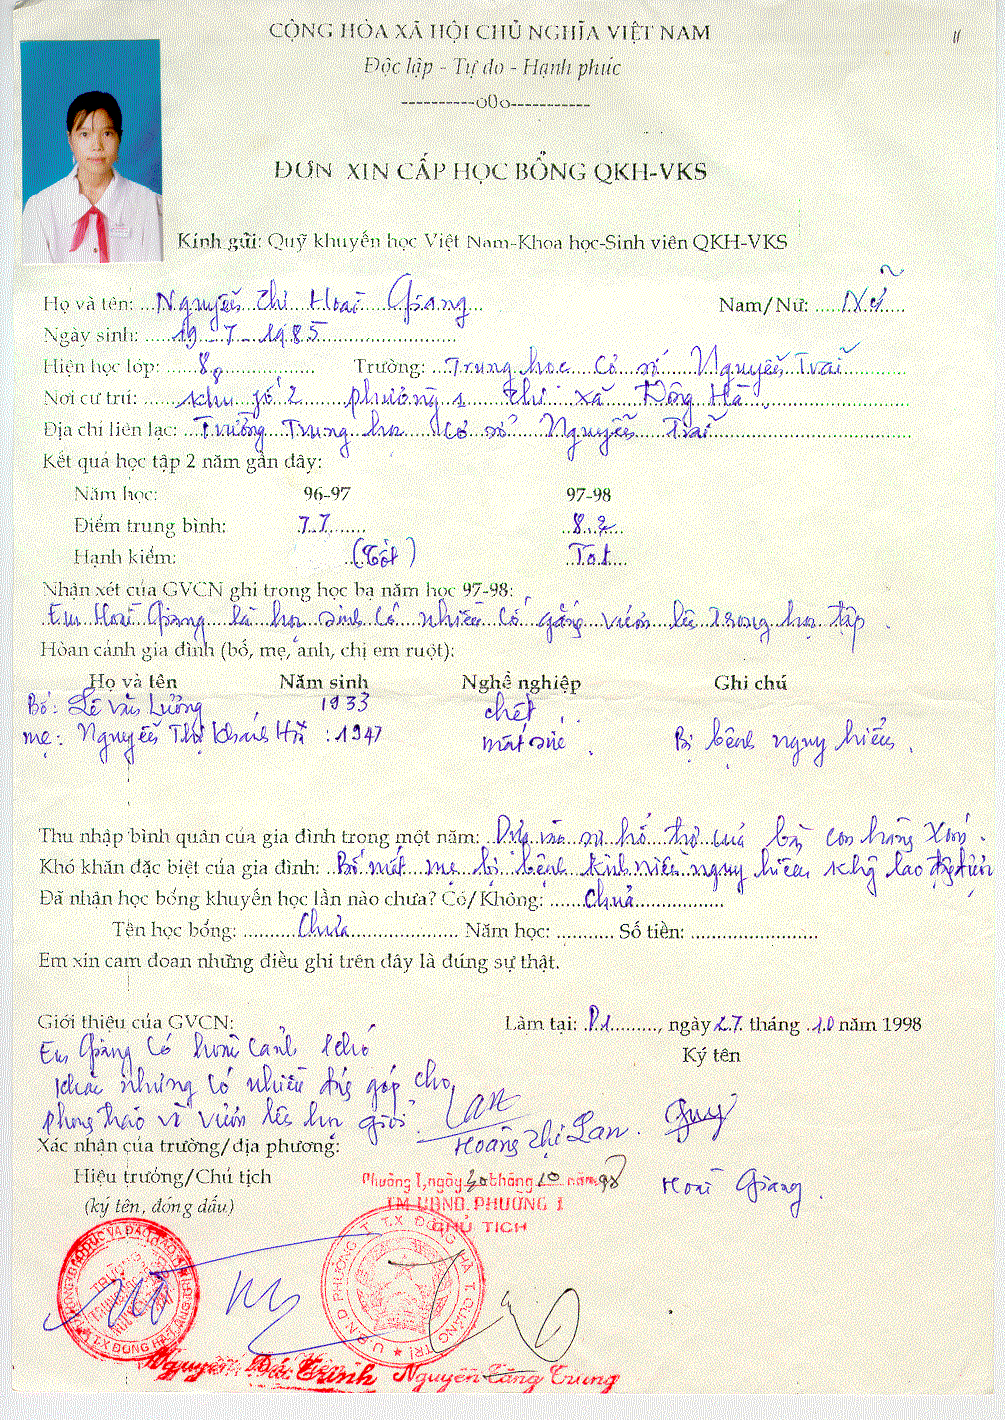 CỘNG HÒA XÃ HỘI CHỦ NGHĨA VIỆT NAM
Độc lập - Tự do - Hạnh phúc
----------o0o-----------
ĐƠN XIN CẤP HỌC BỔNG QKH-VKS
Kính gửi: Quỹ khuyến học Việt Nam-Khoa học-Sinh viên QKH-VKS
Họ và tên: Nguyễn Thị Hoài Giang Nam/Nữ: Nữ
Ngày sinh: 19-7-1985
Hiện học lớp: 8 Trường: Trung học cơ sở Nguyễn Trãi
Nơi cư trú: khu phố 2 phường 1 thị xã Đông Hà
Địa chỉ liên lạc: Trường Trung học cơ sở Nguyễn Trãi
Kết quả học tập 2 năm gần đây:
Năm học: 96-97 97-98
Điểm trung bình: 7.7 8.2
Hạnh kiểm: (Tốt) Tốt
Nhận xét của GVCN ghi trong học bạ năm học 97-98:
Em Hoài Giang là học sinh có nhiều cố gắng vươn lên trong học tập.
Hoàn cảnh gia đình (bố, mẹ, anh, chị em ruột):
Họ và tên Năm sinh Nghề nghiệp Ghi chú
Bố: Lê Văn Lương 1933 chết
mẹ: Nguyễn Thị Khánh Hà : 1947 mất sức. Bị bệnh nguy hiểm.
Thu nhập bình quân của gia đình trong một năm: Dựa vào sự hỗ trợ của bà con hàng xóm.
Khó khăn đặc biệt của gia đình: Bố mất mẹ bị bệnh kinh niên nguy hiểm không lao động được
Đã nhận học bổng khuyến học lần nào chưa? Có/Không: Chưa
Tên học bổng: Chưa Năm học: ........... Số tiền: .......................
Em xin cam đoan những điều ghi trên đây là đúng sự thật.
Giới thiệu của GVCN: Làm tại: P1, ngày 27 tháng 10 năm 1998
Em Giang có hoàn cảnh khó Ký tên
khăn nhưng có nhiều đóng góp cho
phong trào và vươn lên học giỏi. Lan
Hoàng Thị Lan.
Xác nhận của trường/địa phương:
Hiệu trưởng/Chủ tịch Phường 1, ngày 30 tháng 10 năm 98 Hoài Giang.
(ký tên, đóng dấu) TM UBND. PHƯỜNG 1
CHỦ TỊCH
U.B.N.D PHƯỜNG 1 T.X ĐÔNG HÀ T. QUẢNG TRỊ
Nguyễn Tăng Trung